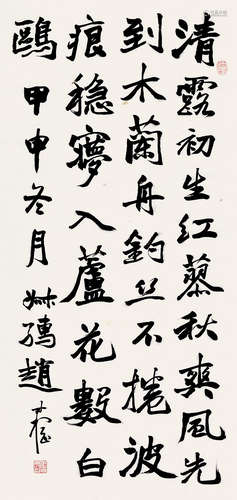 清露初生紅蓼秋爽風先
到木蘭舟釣丝不捲波
痕穩夢入蘆花數白
鷗甲申冬月叔孺趙